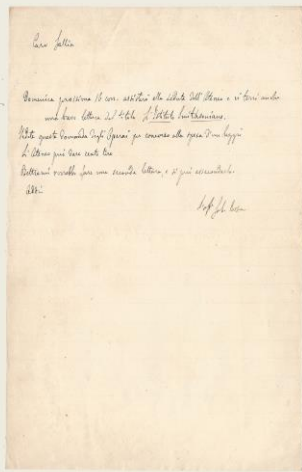 Caro Gallia
Domenica prossima 16 corr. assisterò alla seduta dell'Ateneo e vi terrò anche
una breve lettura dal titolo L'Istituto Smithsoniano.
Vedete questa domanda degli Operai per concorso alla spesa d'un
L'Ateneo può dare cento lire
Bettoni vorrebbe fare una seconda lettura, e si può accordarla.